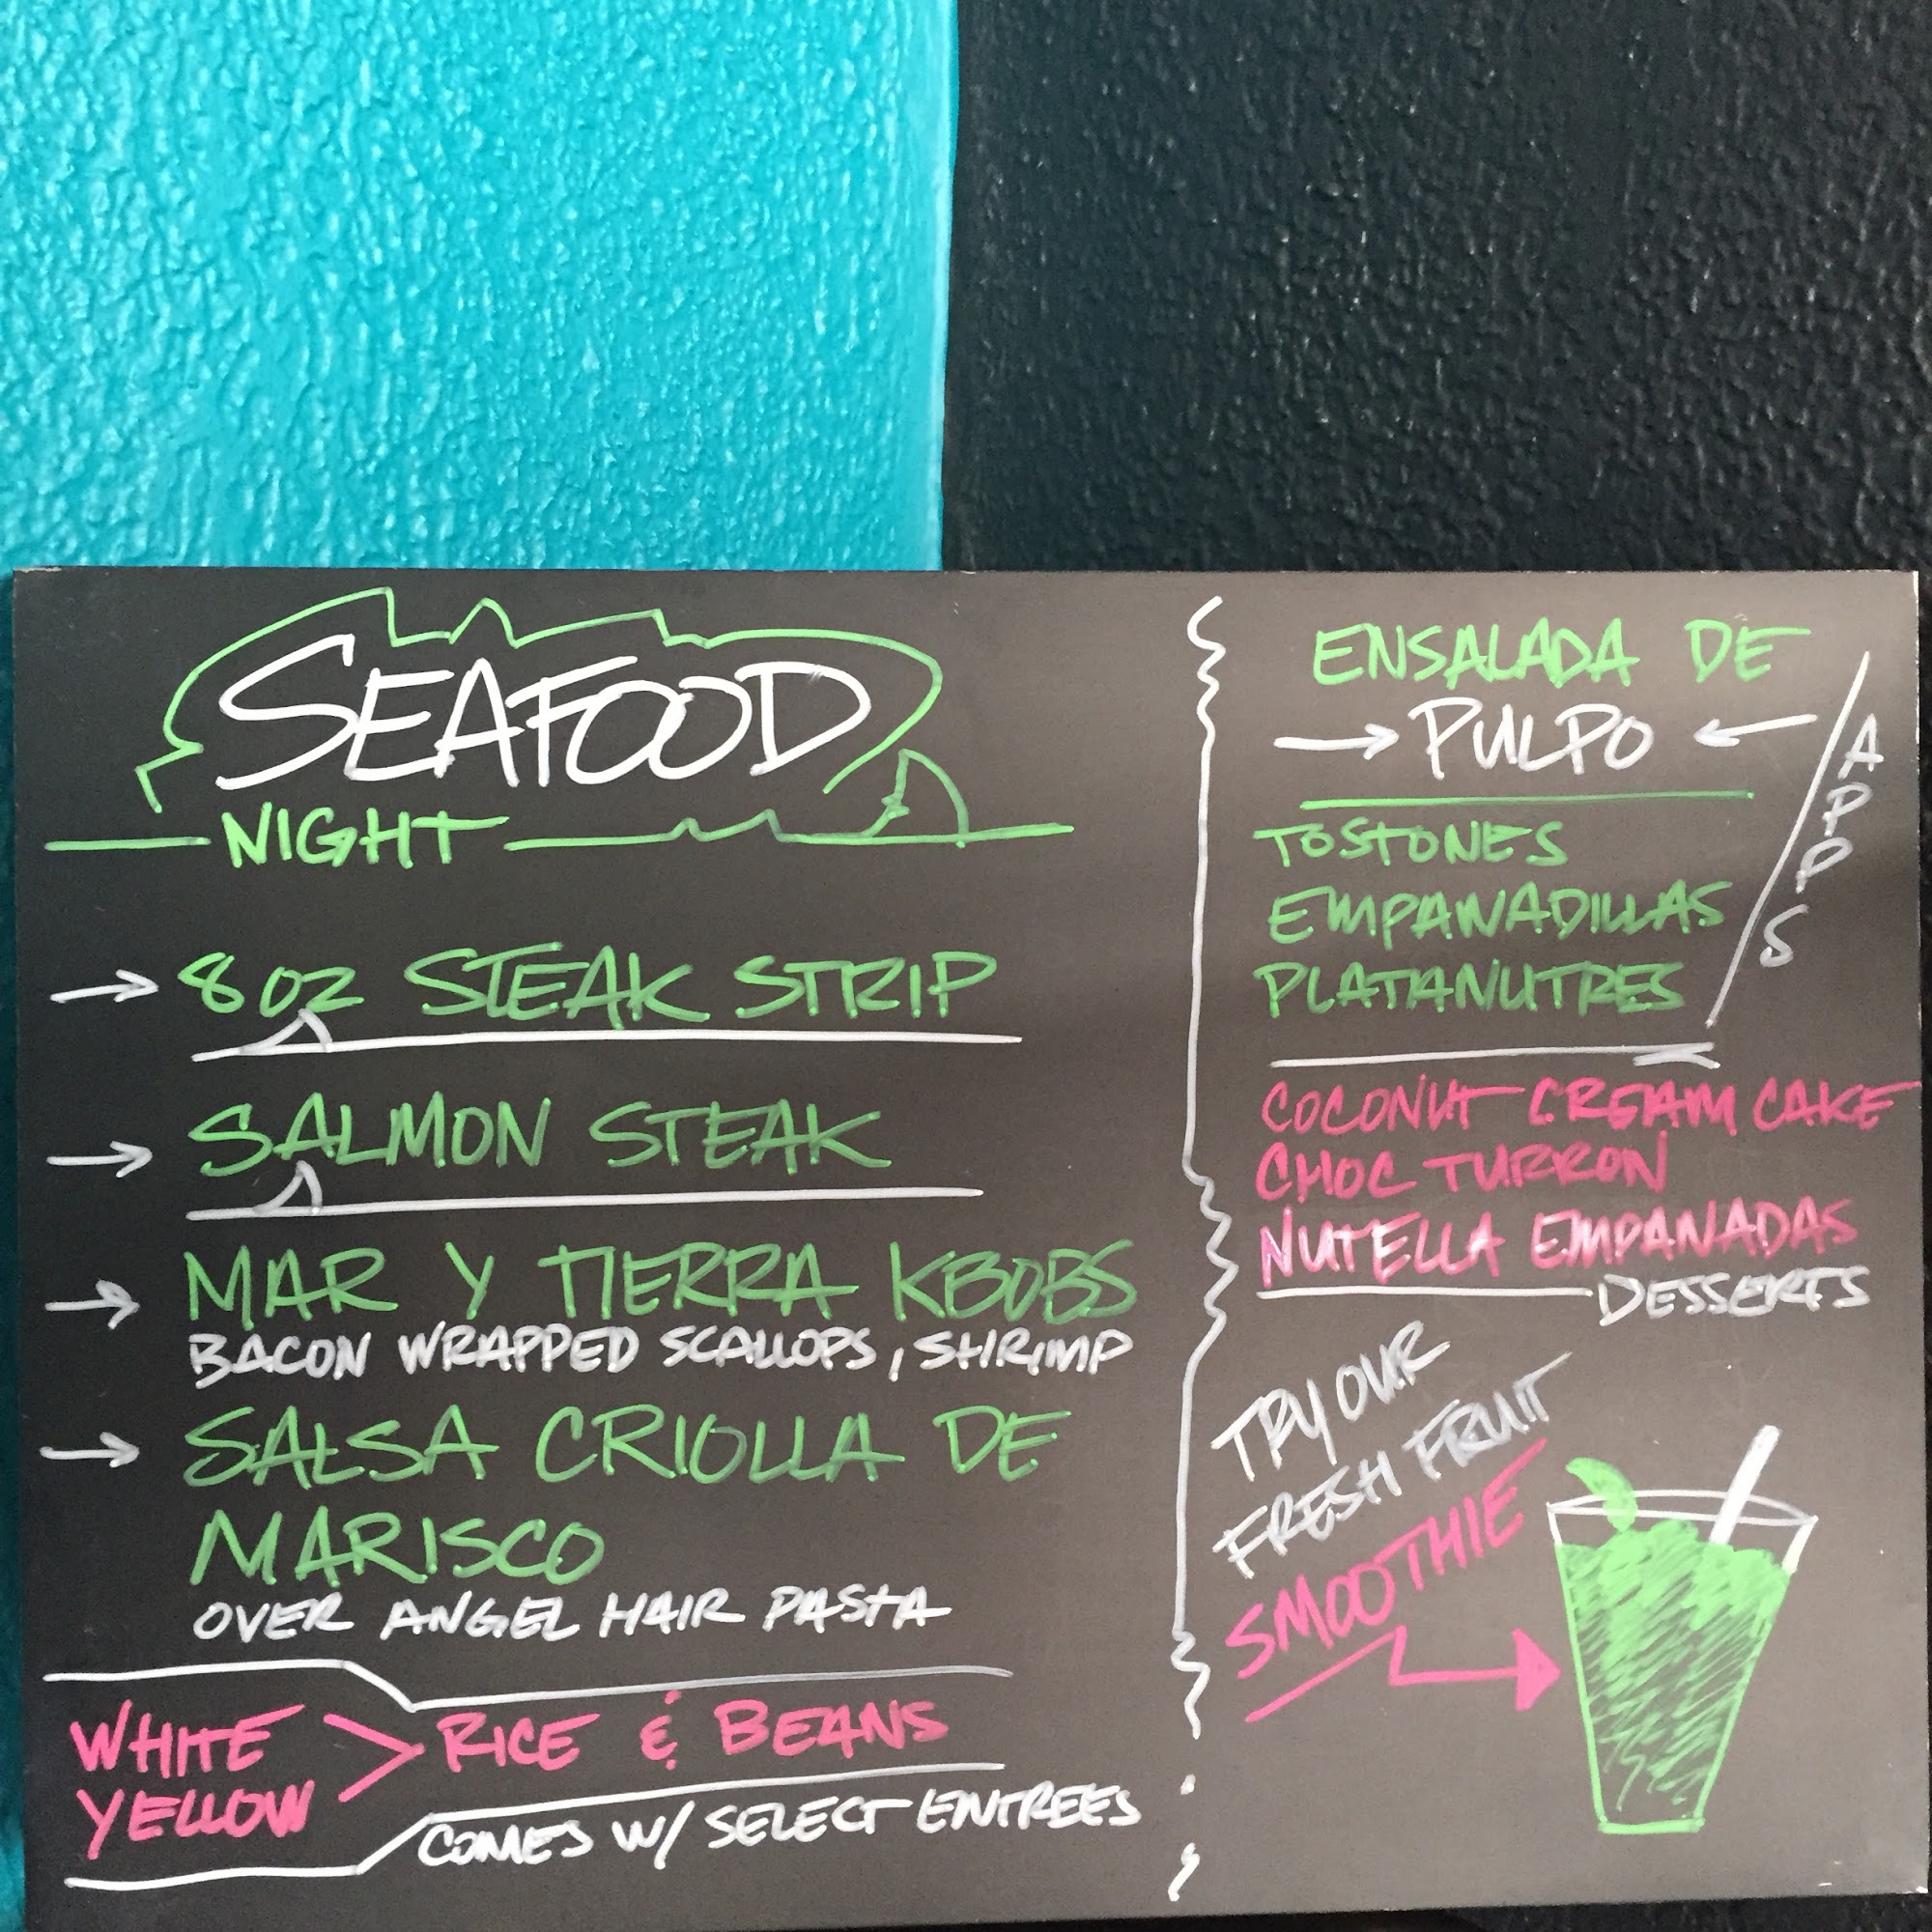 SEAFOOD
NIGHT
8 OZ STEAK STRIP
SALMON STEAK
MAR Y TIERRA KBOBS
BACON WRAPPED SCALLOPS, SHRIMP
SALSA CRIOLLA DE
MARISCO
OVER ANGEL HAIR PASTA
WHITE
YELLOW
RICE & BEANS
COMES W/ SELECT ENTREES
ENSALADA DE
PULPO
TOSTONES
EMPANADILLAS
PLATANUTRES
APPS
COCONUT CREAM CAKE
CHOC TURRON
NUTELLA EMPANADAS
DESSERTS
TRY OUR
FRESH FRUIT
SMOOTHIE